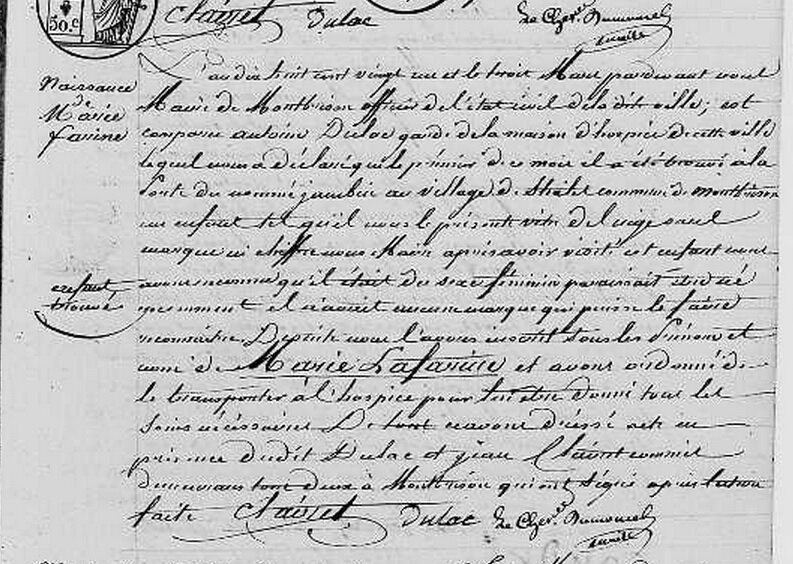 50.c
Clairet Dulac Le Cheer Dumoncel
maire
Naissance
de
Marie
farine
L'an dix huit cent vingt un et le trois Mars pardevant nous
Maire de Montbrison officier de l'état civil de la dite ville; est
comparu antoine Dulac garde de la maison d'hospice de cette ville
lequel nous a déclaré que le premier de ce mois il a été trouvé à la
Porte du nommé au village de commune de montbrison
un enfant tel qu'il nous le présente vêtu de linge sans
marque ni chiffre nous Maire après avoir visité cet enfant nous
enfant
trouvé
avons reconnu qu'il était du sexe féminin paraissait être né
récemment el n'avait aucune marque qui puisse le faire
reconnaitre De suite nous l'avons inscrit sous les Prénom et
nom de Marie Lafarine et avons ordonné de
le transporter à l'hospice pour lui être donné tous les
Soins nécessaires De tout ce avons dressé acte en
présence dudit Dulac et jean Clairet commis
demeurans tous deux à Montbrison qui ont signé après lecture
faite Clairet Dulac Le Cheer Dumoncel
maire